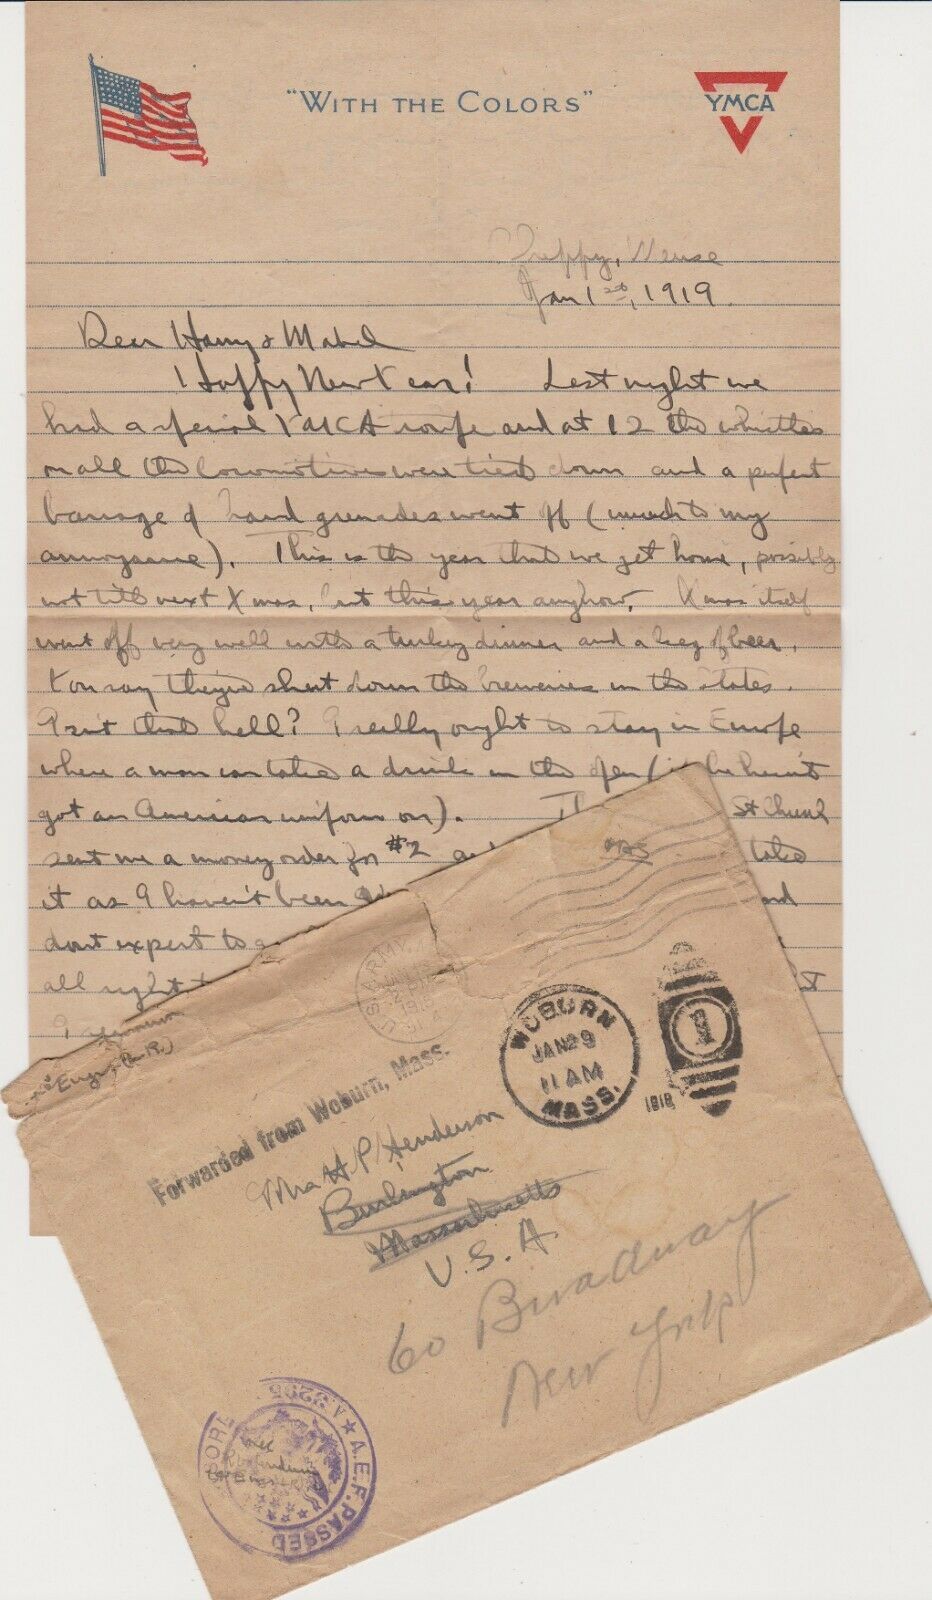 "WITH THE COLORS"
YMCA
Meuse
Jan 1st, 1919.
Dear Harry & Mabel
Happy New Year! Last night we
had a special YMCA and at 12 the whistles
on all the locomotives were tied down and a perfect
barrage of hand grenades went off (much to my
annoyance). This is the year that we get home, possibly
not till next Xmas, but this year anyhow. Xmas itself
went off very well with a turkey dinner and a keg of beer.
You say they've shut down the breweries in the states.
Isn't that hell? I really ought to stay in Europe
where a man can take a drink in the open (if he hasn't
got an American uniform on). St Church
sent me a money order for #2 take
it as I haven't been and
don't expect to
all right
Engrs (C.R.)
U.S. ARMY
WOBURN
JAN 29
11 AM
MASS.
1919
1
Forwarded from Woburn, Mass.
Mrs H P Henderson
Burlington
Massachusetts
U.S.A.
60 Broadway
New York
A.E.F. PASSED A.3205